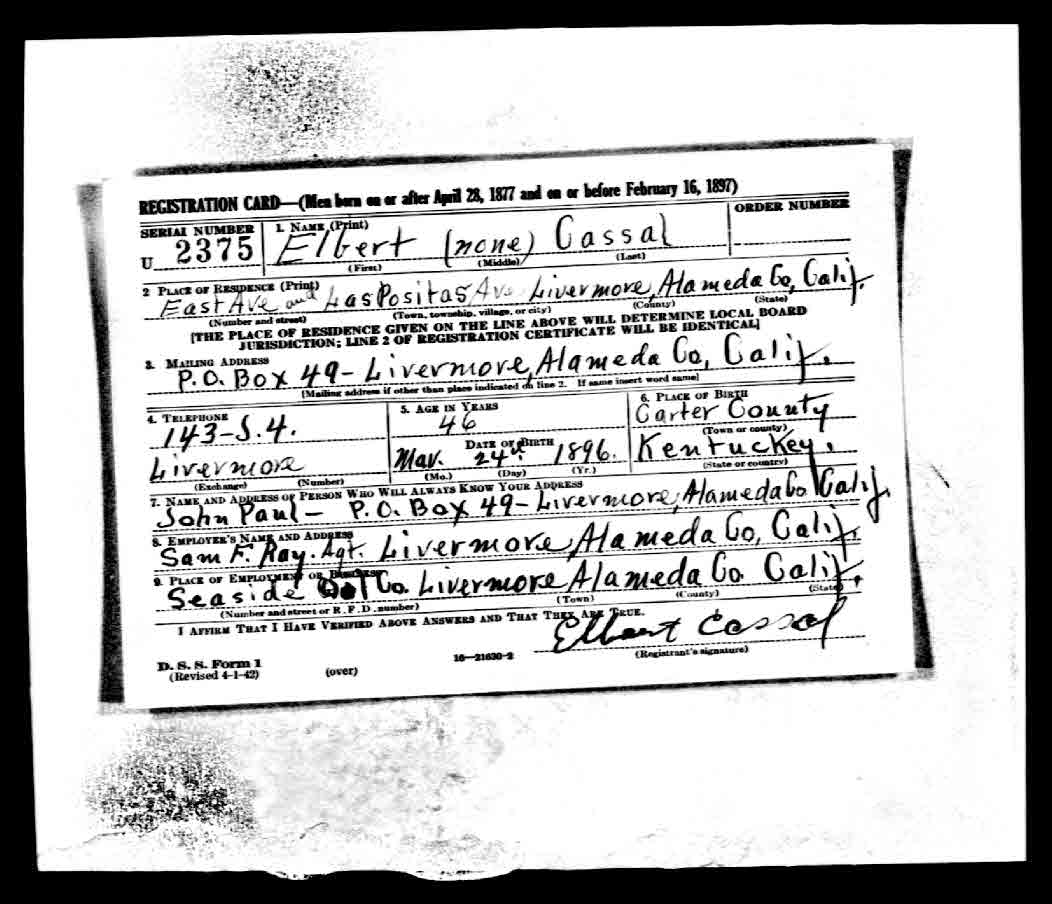 REGISTRATION CARD—(Men born on or after April 28, 1877 and on or before February 16, 1897)
SERIAL NUMBER 1. NAME (Print) ORDER NUMBER
U 2375 Elbert (none) Cassal
(First) (Middle) (Last)
2 PLACE OF RESIDENCE (Print)
East Ave and Las Positas Av. Livermore, Alameda Co, Calif.
(Number and street) (Town, township, village, or city) (County) (State)
[THE PLACE OF RESIDENCE GIVEN ON THE LINE ABOVE WILL DETERMINE LOCAL BOARD
JURISDICTION; LINE 2 OF REGISTRATION CERTIFICATE WILL BE IDENTICAL]
3. MAILING ADDRESS
P.O. Box 49 - Livermore, Alameda Co, Calif.
[Mailing address if other than place indicated on line 2. If same insert word same]
4. TELEPHONE 5. AGE IN YEARS 6. PLACE OF BIRTH
143-J.4. 46 Carter County
DATE OF BIRTH (Town or county)
Livermore Mar. 24th. 1896. Kentucky.
(Exchange) (Number) (Mo.) (Day) (Yr.) (State or country)
7. NAME AND ADDRESS OF PERSON WHO WILL ALWAYS KNOW YOUR ADDRESS
John Paul - P.O. Box 49 - Livermore, Alameda Co Calif.
8. EMPLOYER'S NAME AND ADDRESS
Sam F. Ray. Agt. Livermore, Alameda Co, Calif.
9. PLACE OF EMPLOYMENT OR BUSINESS
Seaside Oil Co. Livermore Alameda Co Calif.
(Number and street or R. F. D. number) (Town) (County) (State)
I AFFIRM THAT I HAVE VERIFIED ABOVE ANSWERS AND THAT THEY ARE TRUE.
Elbert Cassal
D. S. S. Form 1 16—21630-2 (Registrant's signature)
(Revised 4-1-42) (over)